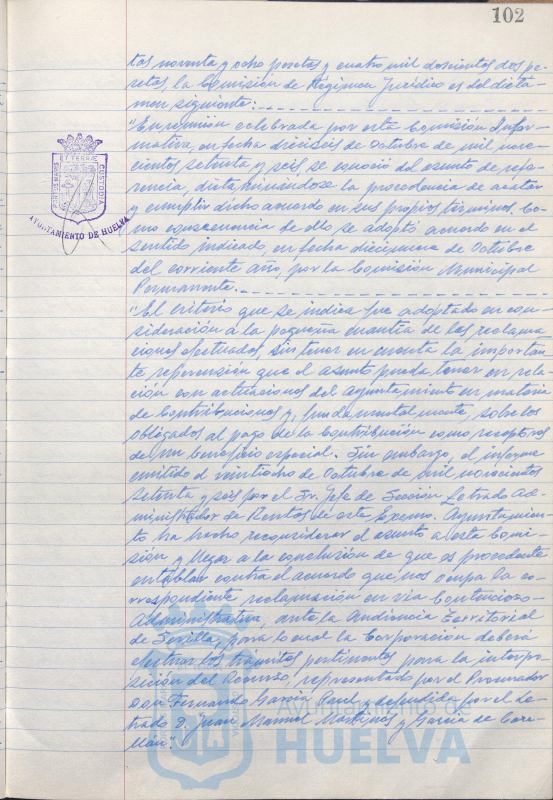 102
tas noventa y ocho pesetas y cuatro mil doscientas dos pe-
setas, la Comisión de Régimen Jurídico es del dicta-
men siguiente:
"En reunión celebrada por esta Comisión Infor-
mativa, en fecha dieciseis de Octubre de mil nove-
cientos setenta y seis, se conoció del asunto de refe-
rencia, dictaminándose la procedencia de acatar
y cumplir dicho acuerdo en sus propios términos. Co-
mo consecuencia de ello se adoptó acuerdo en el
sentido indicado, en fecha diecinueve de Octubre
del corriente año, por la Comisión Municipal
Permanente.
"El criterio que se indica fue adoptado en con-
sideración a la pequeña cuantia de las reclama-
ciones efectuadas, sin tener en cuenta la importan-
te repercusión que el asunto pueda tener en rela-
ción con actuaciones del ayuntamiento en materia
de Contribuciones y, fundamentalmente, sobre los
obligados al pago de la Contribución como receptores
de un beneficio especial. Sin embargo, el informe
emitido el veintiocho de Octubre de mil novecientos
setenta y seis por el Sr. Jefe de Sección Letrado Ad-
ministrador de Rentas de este Excmo. Ayuntamien-
to ha hecho reconsiderar el asunto a esta Comi-
sión y llegar a la conclusión de que es procedente
entablar contra el acuerdo que nos ocupa la co-
rrespondiente reclamación en via Contencioso-
Administrativa, ante la Audiencia Territorial
de Sevilla, para lo cual la Corporación deberá
efectuar los trámites pertinentes para la interpo-
sición del Recurso, representado por el Procurador
Don Fernando García Paul y defendido por el Le-
trado D. Juan Manuel Martinez y García de
ET TERRAE
CUSTODIA
AYUNTAMIENTO DE HUELVA
Ayuntamiento de
HUELVA